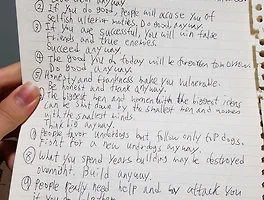 anyway.
② If you do good, people will accuse you of
selfish ulterior motives. Do good anyway.
③ If you are successful, you will win false
friends and true enemies.
Succeed anyway.
④ The good you do today will be forgotten tomorrow.
Do good anyway.
⑤ Honesty and frankness make you vulnerable.
Be honest and frank anyway.
⑥ The biggest men and women with the biggest ideas
can be shot down by the smallest men and women
with the smallest minds.
Think big anyway.
⑦ People favor underdogs but follow only top dogs.
Fight for a new underdogs anyway.
⑧ What you spend years building may be destroyed
overnight. Build anyway.
⑨ People really need help and may attack you
if you